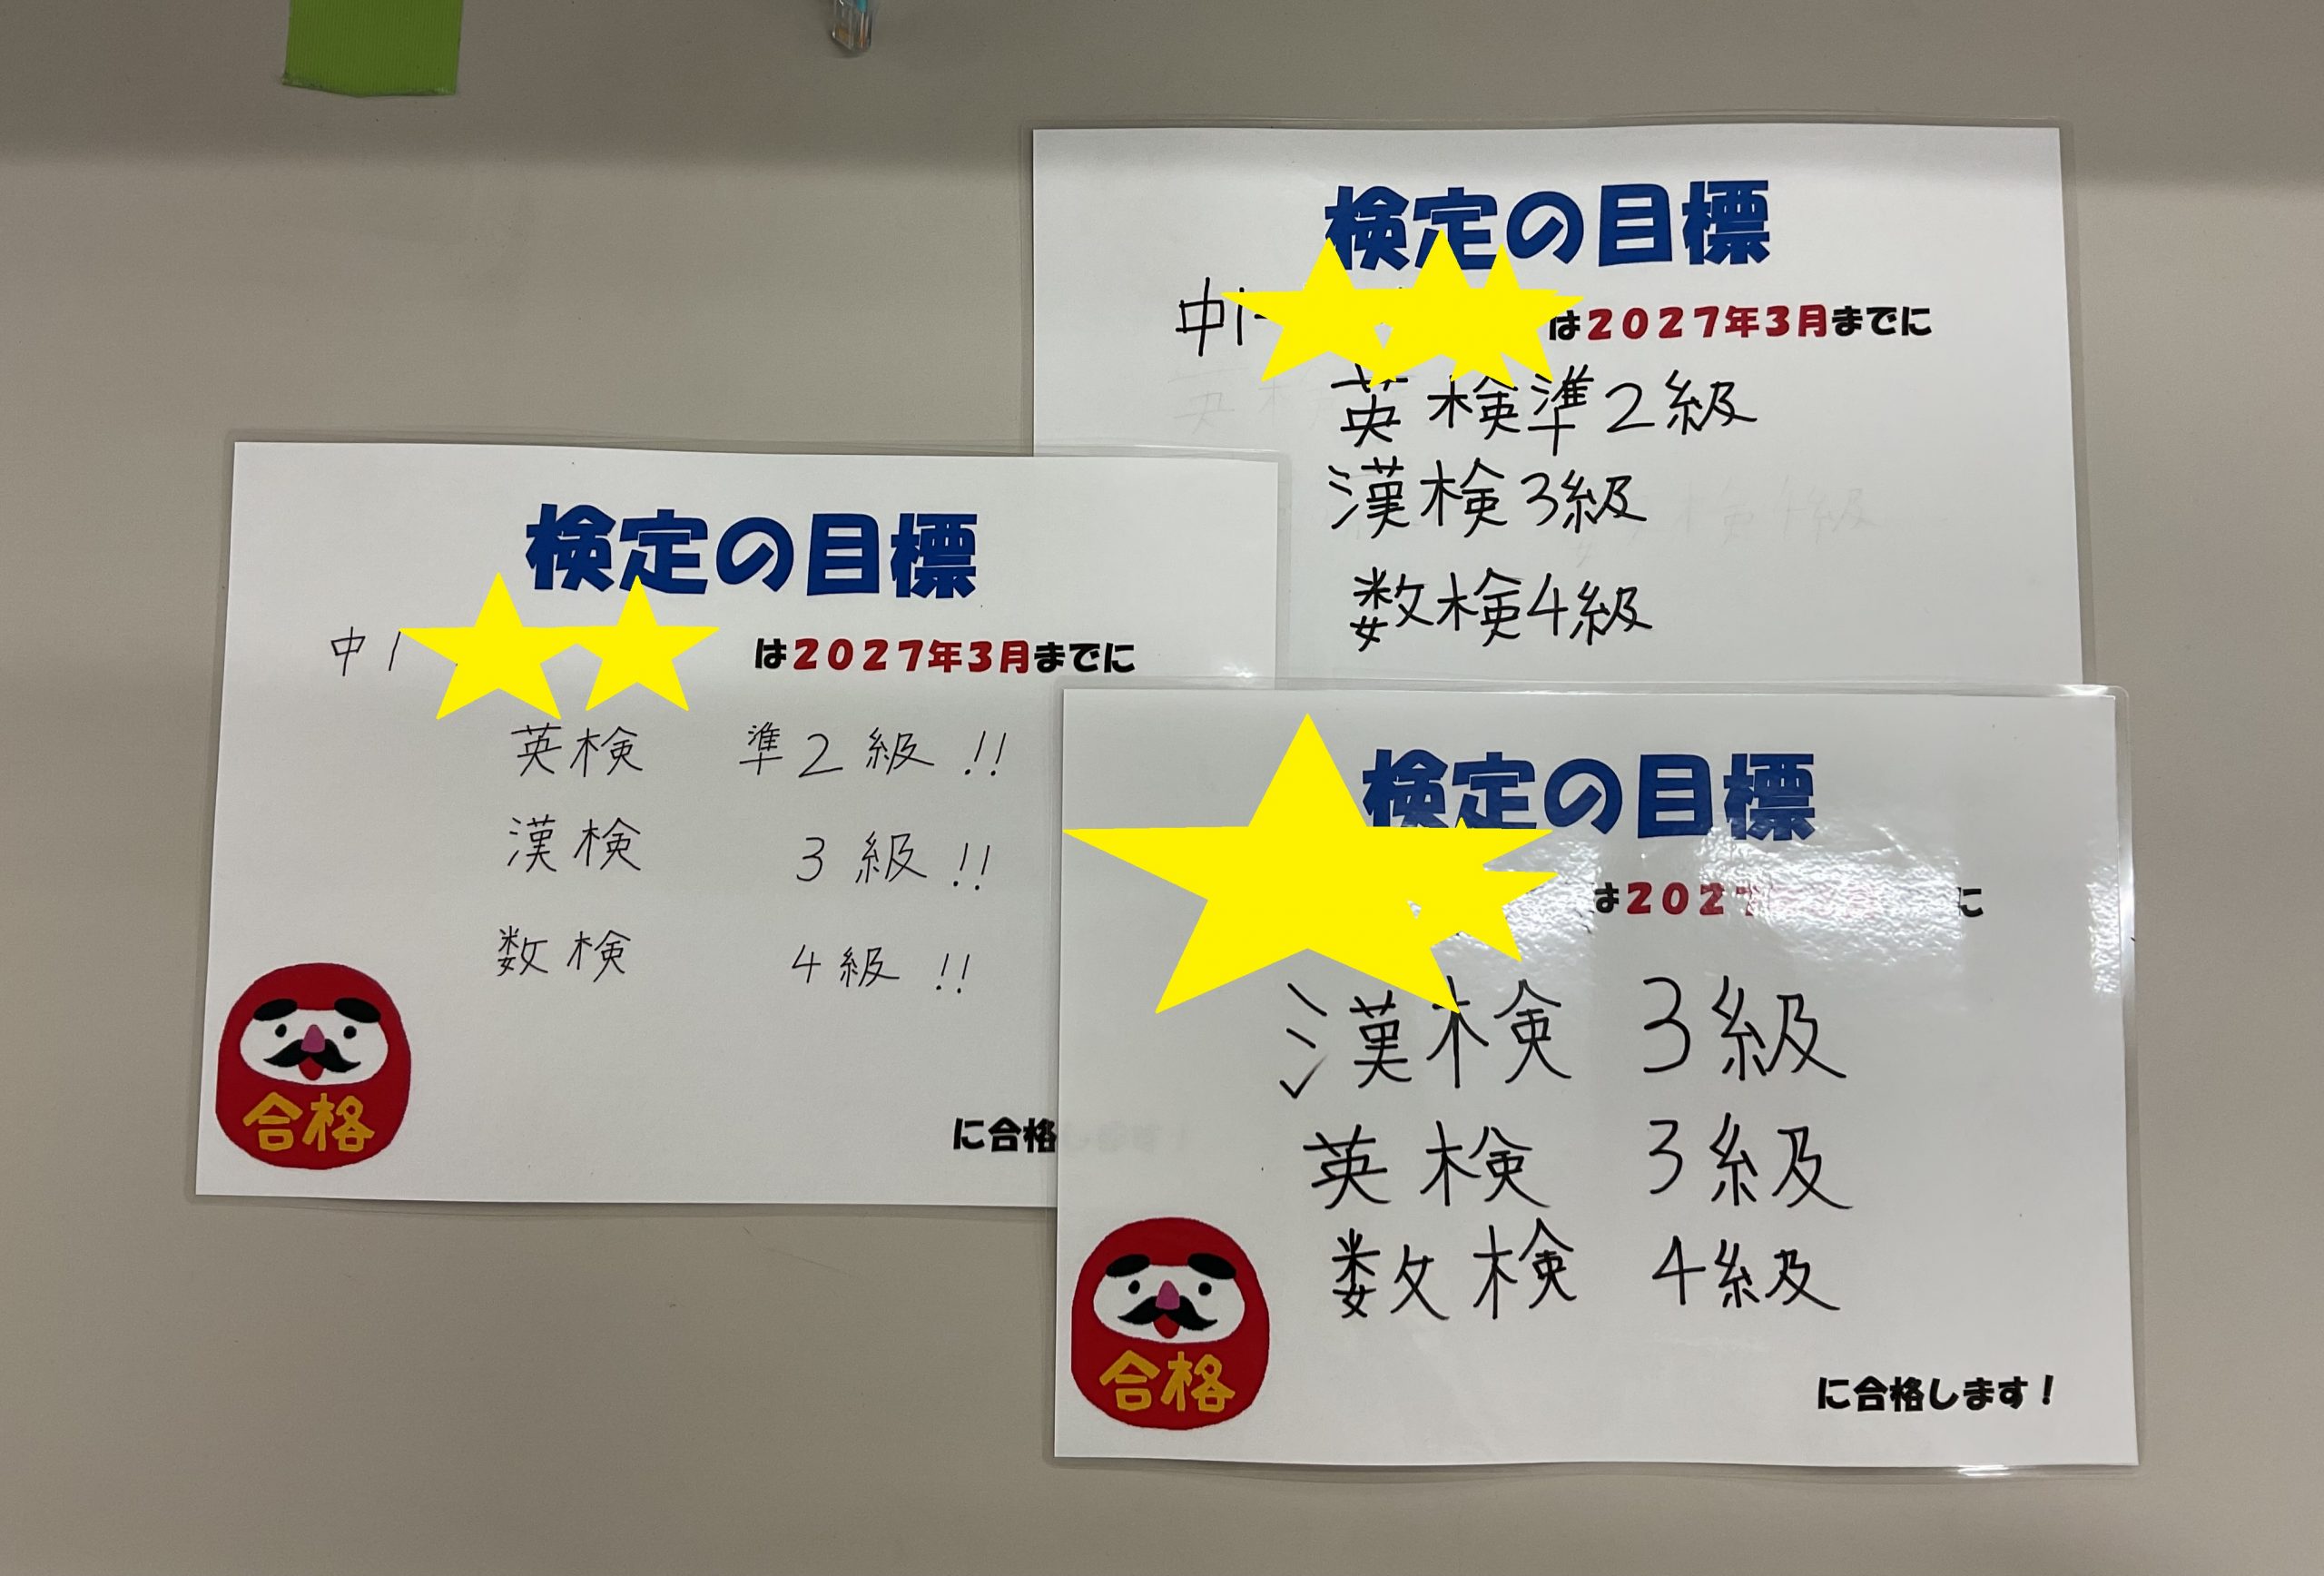 検定の目標
中1
は2027年3月までに
英検準2級
漢検3級
数検4級
検定の目標
中1
は2027年3月までに
英検 準2級!!
漢検 3級!!
数検 4級!!
合格
に合格
検定の目標
は2027
に
漢検 3級
英検 3級
数検 4級
合格
に合格します!